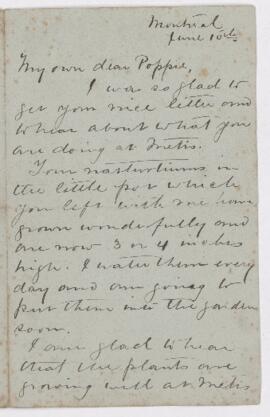 Montreal
June 10th
My own dear Poppie,
I was so glad to
get your nice letter and
to hear about what you
are doing at Metis.
Your nasturtiums in
the little pot which
you left with me have
grown wonderfully and
are now 3 or 4 inches
high. I water them every
day and am going to
put them into the garden
soon.
I am glad to hear
that the plants are
growing well at Metis